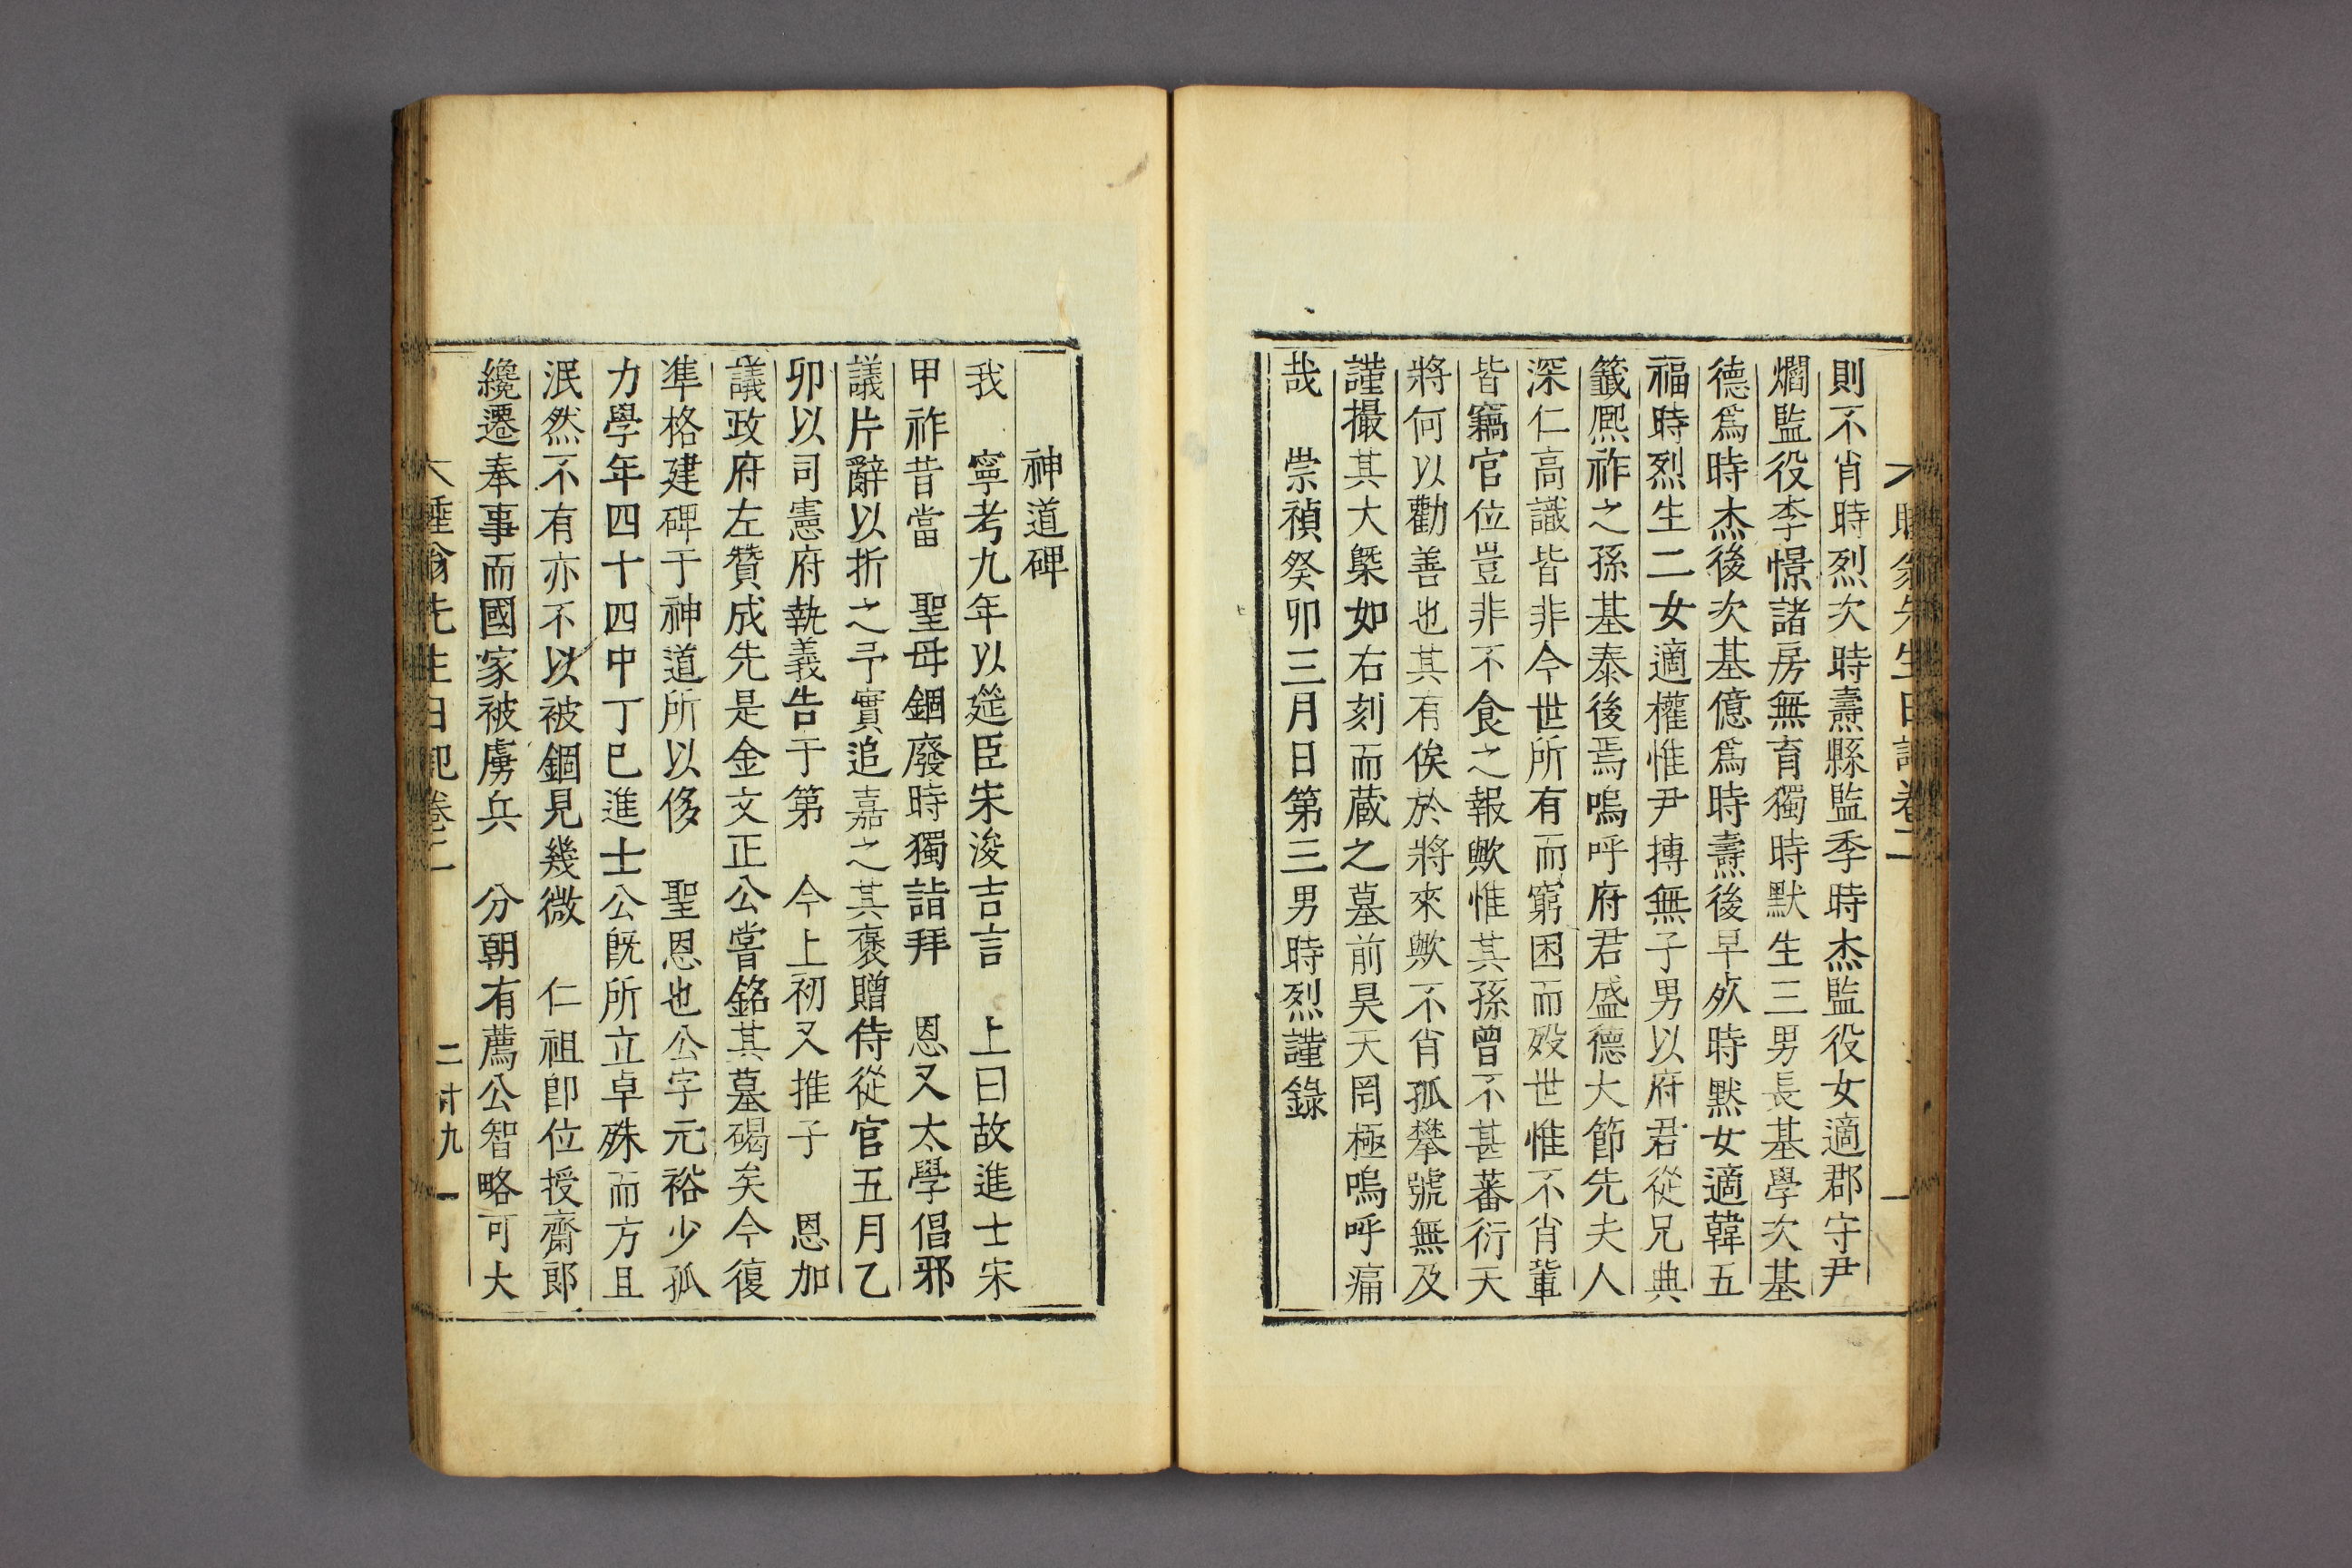 則不肖時烈次時燾縣監季時杰監役女適郡守尹
爓監役李憬諸房無育獨時默生三男長基學次基
德爲時杰後次基億爲時燾後早殀時默女適韓五
福時烈生二女適權惟尹搏無子男以府君從兄典
籤熈祚之孫基泰後焉嗚呼府君盛德大節先夫人
深仁高識皆非今世所有而窮困而歿世惟不肖輩
皆竊官位豈非不食之報歟惟其孫曾不甚蕃衍天
將何以勸善也其有俟於將來歟不肖孤攀號無及
謹撮其大槩如右刻而蔵之墓前昊天罔極嗚呼痛
哉 崇禎癸卯三月日第三男時烈謹錄
神道碑
我 寧考九年以筵臣宋浚吉言 上曰故進士宋
甲祚昔當 聖母錮廢時獨詣拜 恩又太學倡邪
議片辭以折之予實追嘉之其褒贈侍從官五月乙
卯以司憲府執義告于第 今上初又推子 恩加
議政府左贊成先是金文正公嘗銘其墓碣矣今復
凖格建碑于神道所以侈 聖恩也公字元裕少孤
力學年四十四中丁巳進士公旣所立卓殊而方且
泯然不有亦不以被錮見幾微 仁祖卽位授齋郞
纔遷奉事而國家被虜兵 分朝有薦公智略可大
睡翁先生日記卷二 二十九